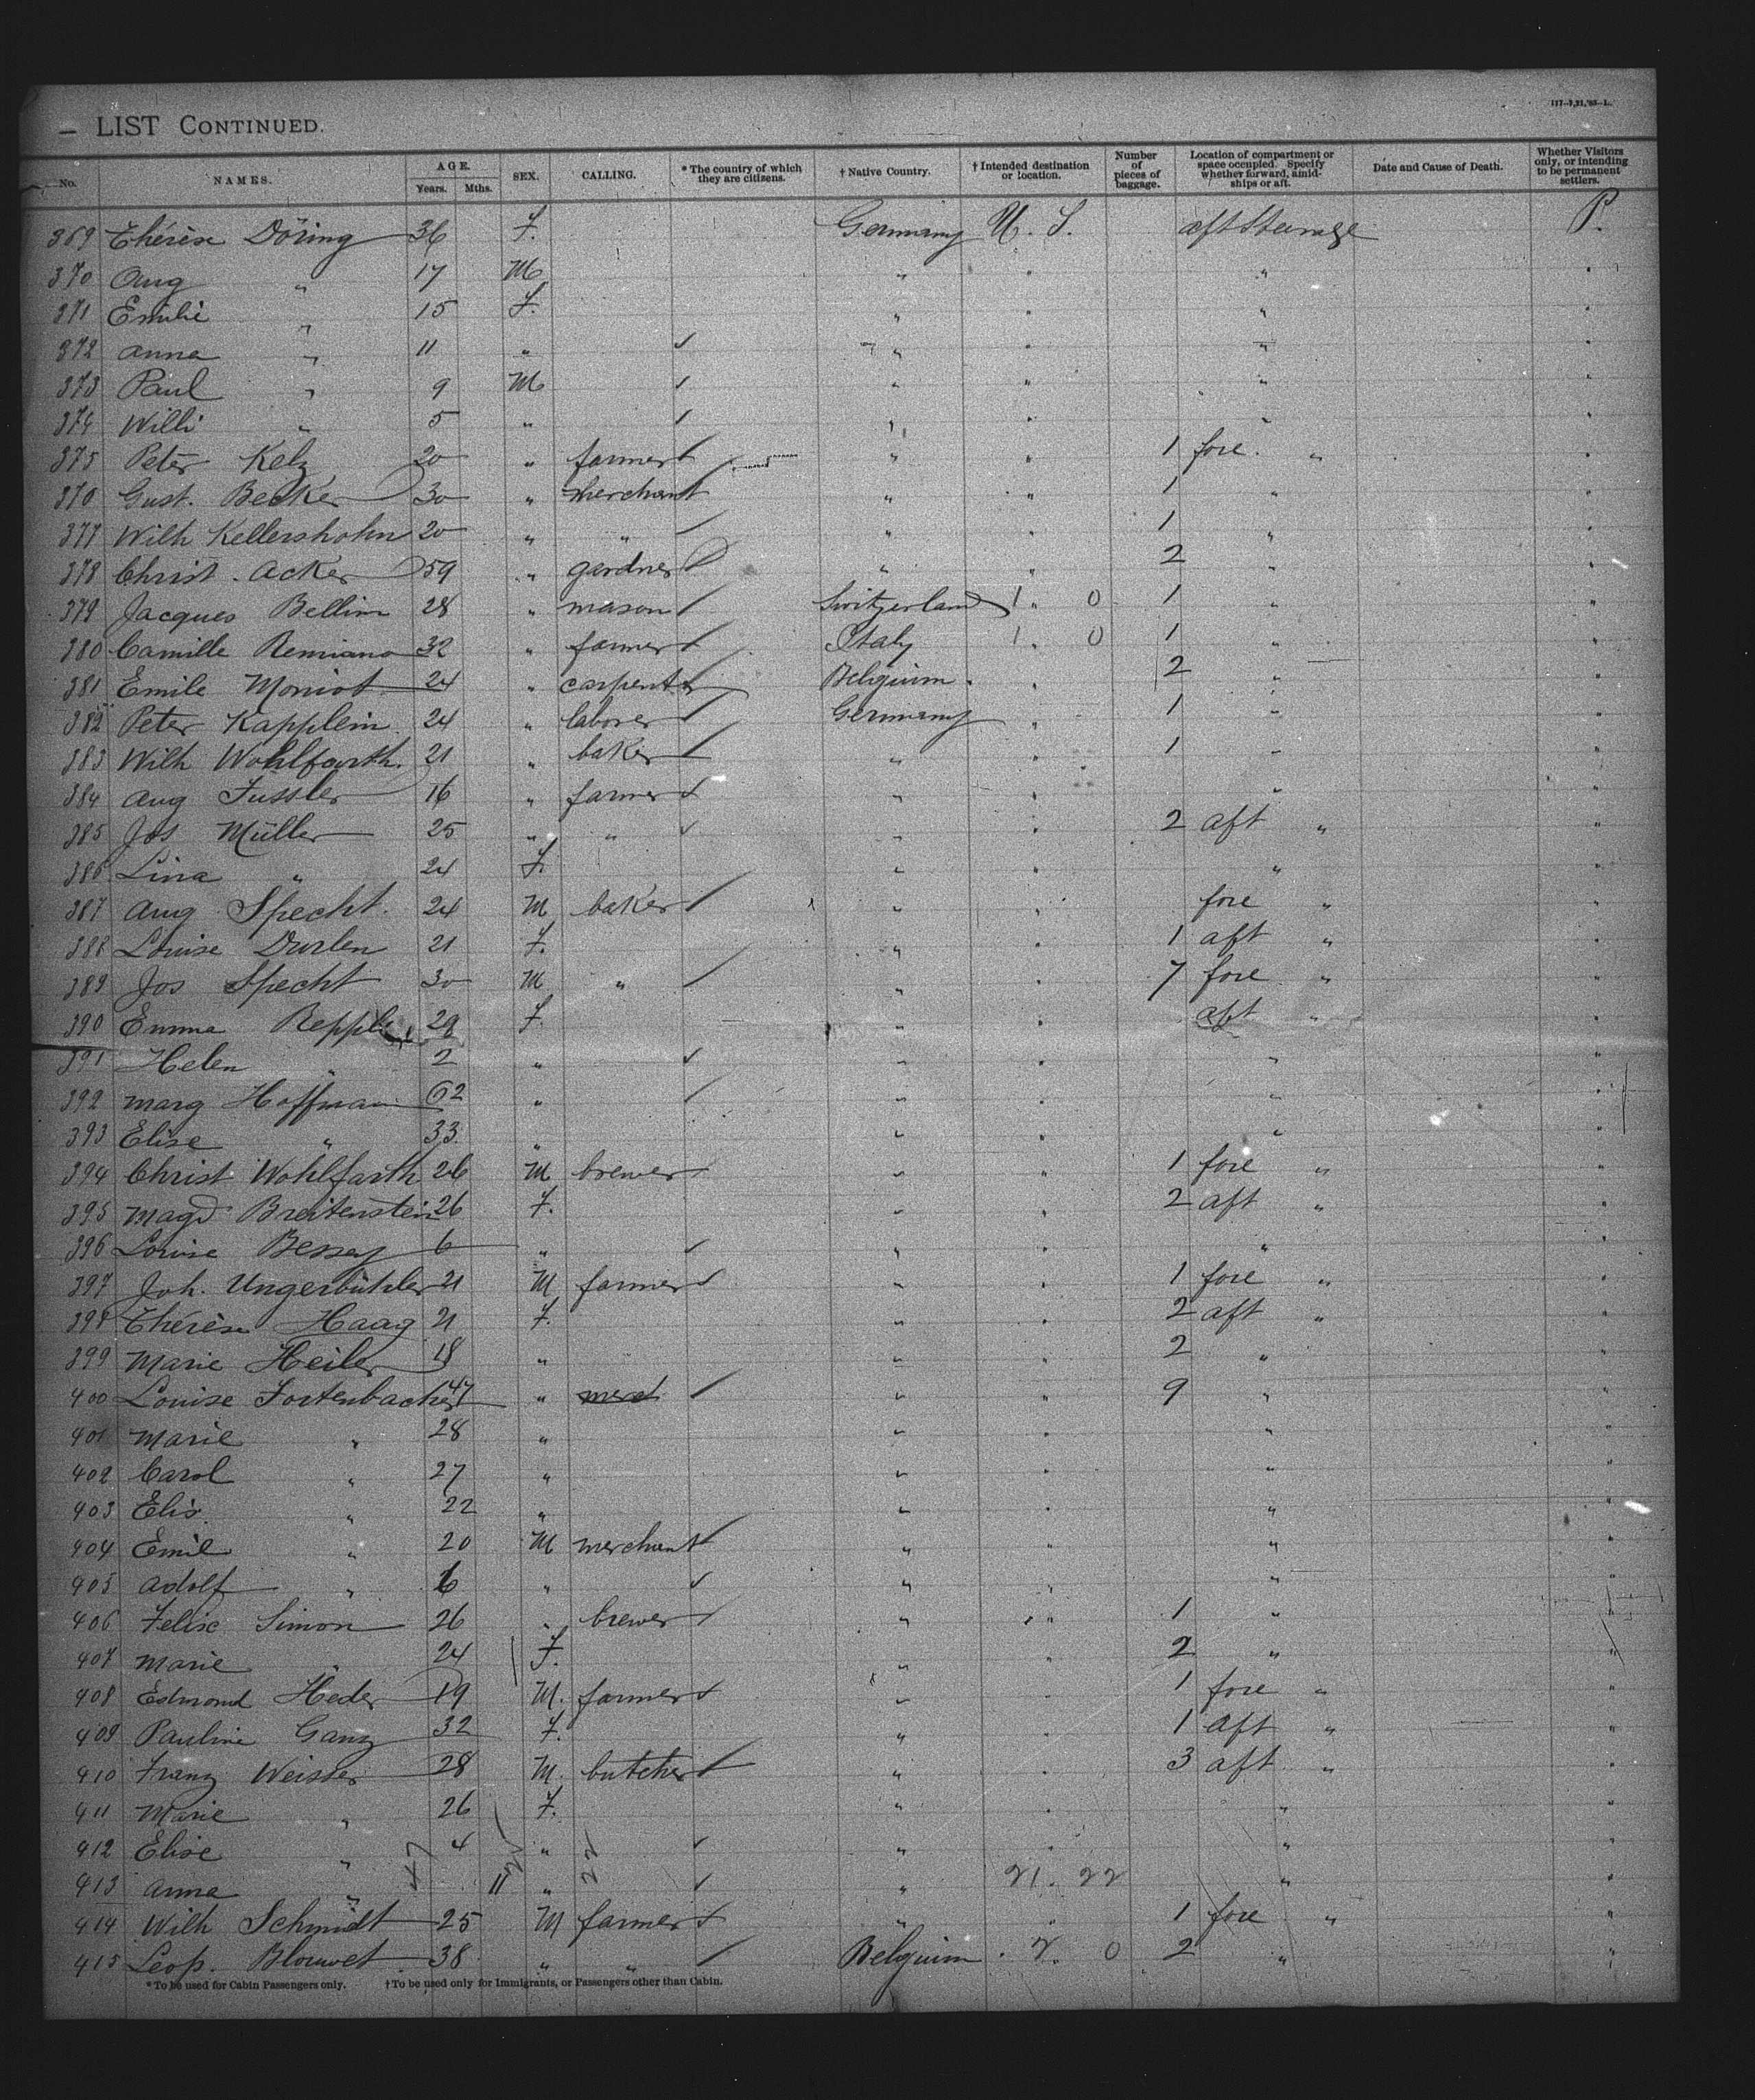 117-7,21,'93-L.
— LIST CONTINUED.
No. NAMES. AGE. Years. Mths. SEX. CALLING. * The country of which they are citizens. † Native Country. † Intended destination or location. Number of pieces of baggage. Location of compartment or space occupied. Specify whether forward, amidships or aft. Date and Cause of Death. Whether Visitors only, or intending to be permanent settlers.
369 Thérèse Döring 36 F. Germany U. S. aft Steerage P.
370 Aug " 17 M " " " "
371 Emilie " 15 F. " " " "
372 Anna " 11 " ✓ " " " "
373 Paul " 9 M ✓ " " " "
374 Willi " 5 " ✓ " " " "
375 Peter Kelz 20 " farmer ✓ " " 1 fore " "
376 Gust. Becker 30 " merchant ✓ " " 1 " "
377 Wilh Kellershohn 20 " " ✓ " " 1 " "
378 Christ. Acker 59 " gardner ✓ " " 2 " "
379 Jacques Bellini 28 " mason ✓ Switzerland 1 " 0 1 " "
380 Camille Remiano 32 " farmer ✓ Italy 1 " 0 1 " "
381 Emile Moniot 24 " carpenter ✓ Belgium " 2 " "
382 Peter Kapplein 24 " laborer ✓ Germany " 1 " "
383 Wilh Wohlfarth. 21 " baker ✓ " " 1 " "
384 Aug Fussler 16 " farmer ✓ " " " "
385 Jos Müller 25 " " ✓ " " 2 aft " "
386 Lina " 24 F. " " " "
387 Aug Specht. 24 M baker ✓ " " fore " "
388 Louise Durlen 21 F. " " 1 aft " "
389 Jos Specht 30 M " ✓ " " 7 fore " "
390 Emma Repple 29 F. " " aft " "
391 Helen " 2 " ✓ " " " "
392 Marg Hoffman 62 " ✓ " " " "
393 Elise " 33 " " " " "
394 Christ Wohlfarth 26 M brewer ✓ " " 1 fore " "
395 Magd Breitenstein 26 F. " " 2 aft " "
396 Louise Bessey 6 " ✓ " " " "
397 Joh. Ungerbühler 21 M farmer ✓ " " 1 fore " "
398 Thérèse Haag 21 F. " " 2 aft " "
399 Marie Heiler 18 " " " 2 " "
400 Louise Fortenbacher 47 " merch ✓ " " 9 " "
401 Marie " 28 " " " " "
402 Carol " 27 " " " " "
403 Elis. " 22 " " " " "
404 Emil " 20 M merchant ✓ " " " "
405 Adolf " 6 " ✓ " " " "
406 Felix Simon 26 " brewer ✓ " " 1 " "
407 Marie " 24 F. " " 2 " "
408 Edmond Heder 19 M. farmer ✓ " " 1 fore " "
409 Pauline Ganz 32 F. " " 1 aft " "
410 Franz Weisser 28 M. butcher ✓ " " 3 aft " "
411 Marie " 26 F. " " " "
412 Elise " 4 " ✓ " " " "
413 Anna " 11 " ✓ " 21. 22 " "
414 Wilh Schmidt 25 M farmer ✓ " " 1 fore " "
415 Leop. Blouwet 38 " " ✓ Belgium 2. 0 2 " "
* To be used for Cabin Passengers only. † To be used only for Immigrants, or Passengers other than Cabin.